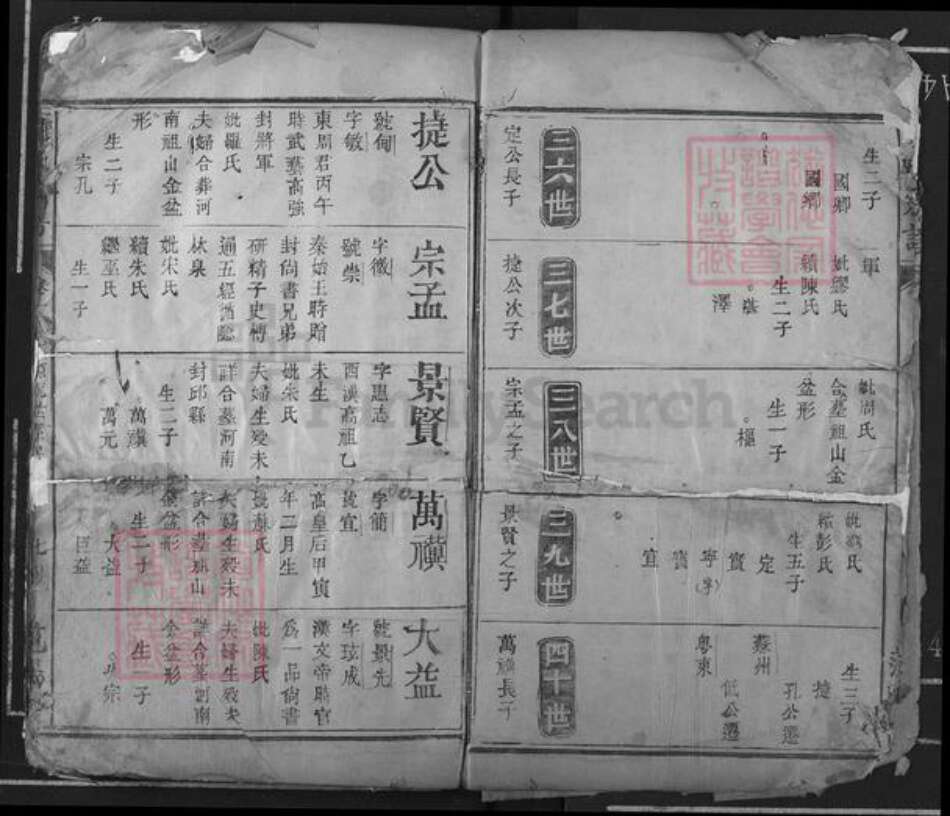 生二子
國卿
國鄉
三六世
定公長子
軍
妣繆氏
續陳氏
生二子
堪
澤
三七世
捷公次子
妣周氏
合墓祖山金
盆形
生一子
樞
三八世
宗孟之子
續彭氏
生五子
定
寶
寧
宜
三九世
景賢之子
生三子
捷
孔公遷
蘇州
低公遷
粵東
四十世
萬禩長子
捷公
號甸
字敏
東周君丙午
時武藝高強
封將軍
妣羅氏
夫婦合葬河
南祖山金盆
形
生二子
宗孔
宗孟
字徽
號崇
秦始王時贈
封尙書兄弟
研精子史博
通五經循臨
林泉
妣宋氏
續朱氏
繼巫氏
生一子
景賢
字思志
西漢高祖乙
未生
妣朱氏
夫婦生歿未
詳合墓河南
封邱縣
生二子
萬禩
萬元
萬禩
字簡
號宜
高皇后甲寅
年二月生
妣蘇氏
夫婦生殁未
詳合墓祖山
金盆形
生二子
大益
巨益
大益
號景先
字玹成
漢文帝時官
爲一品尙書
妣陳氏
夫婦生殁未
詳合墓劉南
金盆形
生 子